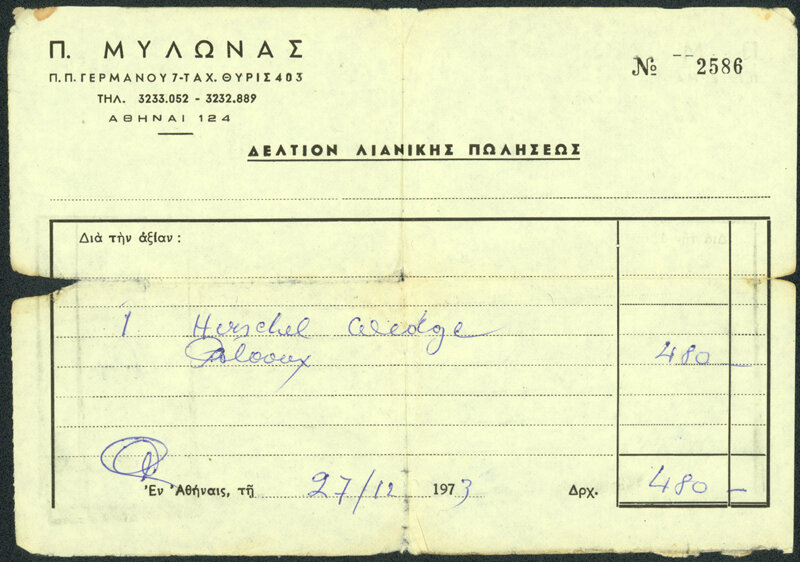 Π. ΜΥΛΩΝΑΣ
Π. Π. ΓΕΡΜΑΝΟΥ 7-ΤΑΧ. ΘΥΡΙΣ 403
ΤΗΛ. 3233.052 - 3232.889
ΑΘΗΝΑΙ 124
№ 2586
ΔΕΛΤΙΟΝ ΛΙΑΝΙΚΗΣ ΠΩΛΗΣΕΩΣ
Διὰ τὴν ἀξίαν :
1 Herschel Wedge
480 —
Ἐν Ἀθήναις, τῇ 27/12 1973 Δρχ. 480 —